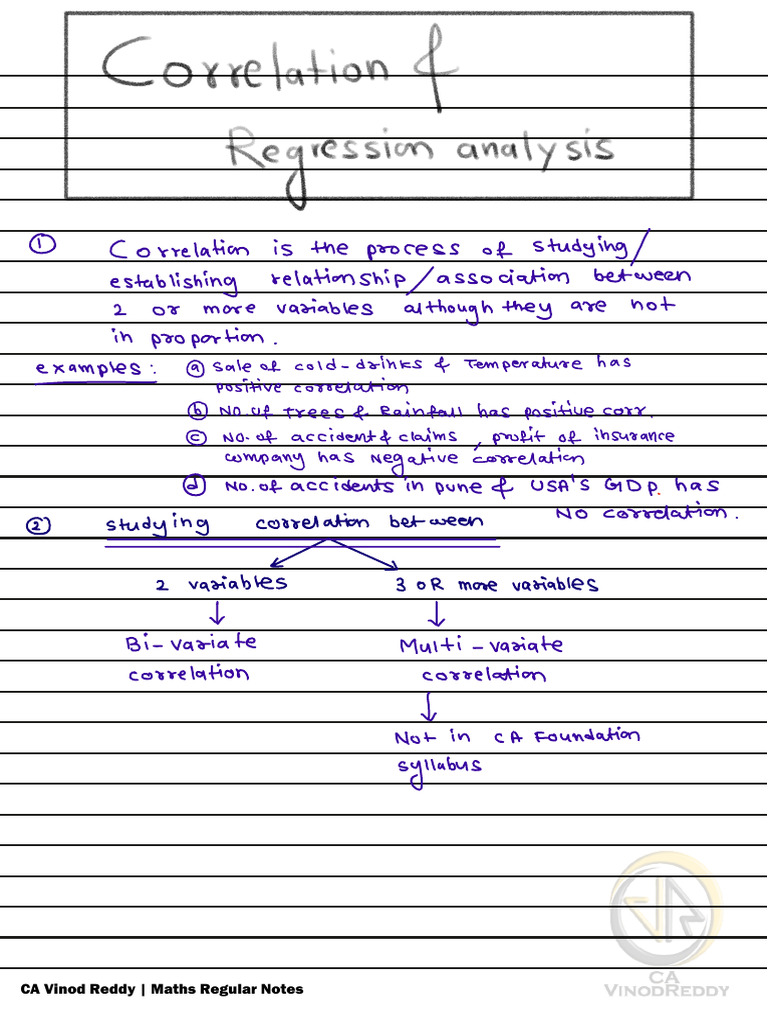 Correlation &
Regression analysis
① Correlation is the process of studying/
establishing relationship/association between
2 or more variables although they are not
in proportion.
examples: ⓐ Sale of cold-drinks & Temperature has
positive correlation
ⓑ No. of Trees & Rainfall has positive corr.
ⓒ No. of accident & claims, profit of insurance
company has Negative correlation
ⓓ No. of accidents in pune & USA's GDP has
No correlation.
② studying correlation between
2 variables 3 OR more variables
↓ ↓
Bi-variate Multi-variate
correlation correlation
↓
Not in CA Foundation
syllabus
CA
VINODREDDY
CA Vinod Reddy | Maths Regular Notes